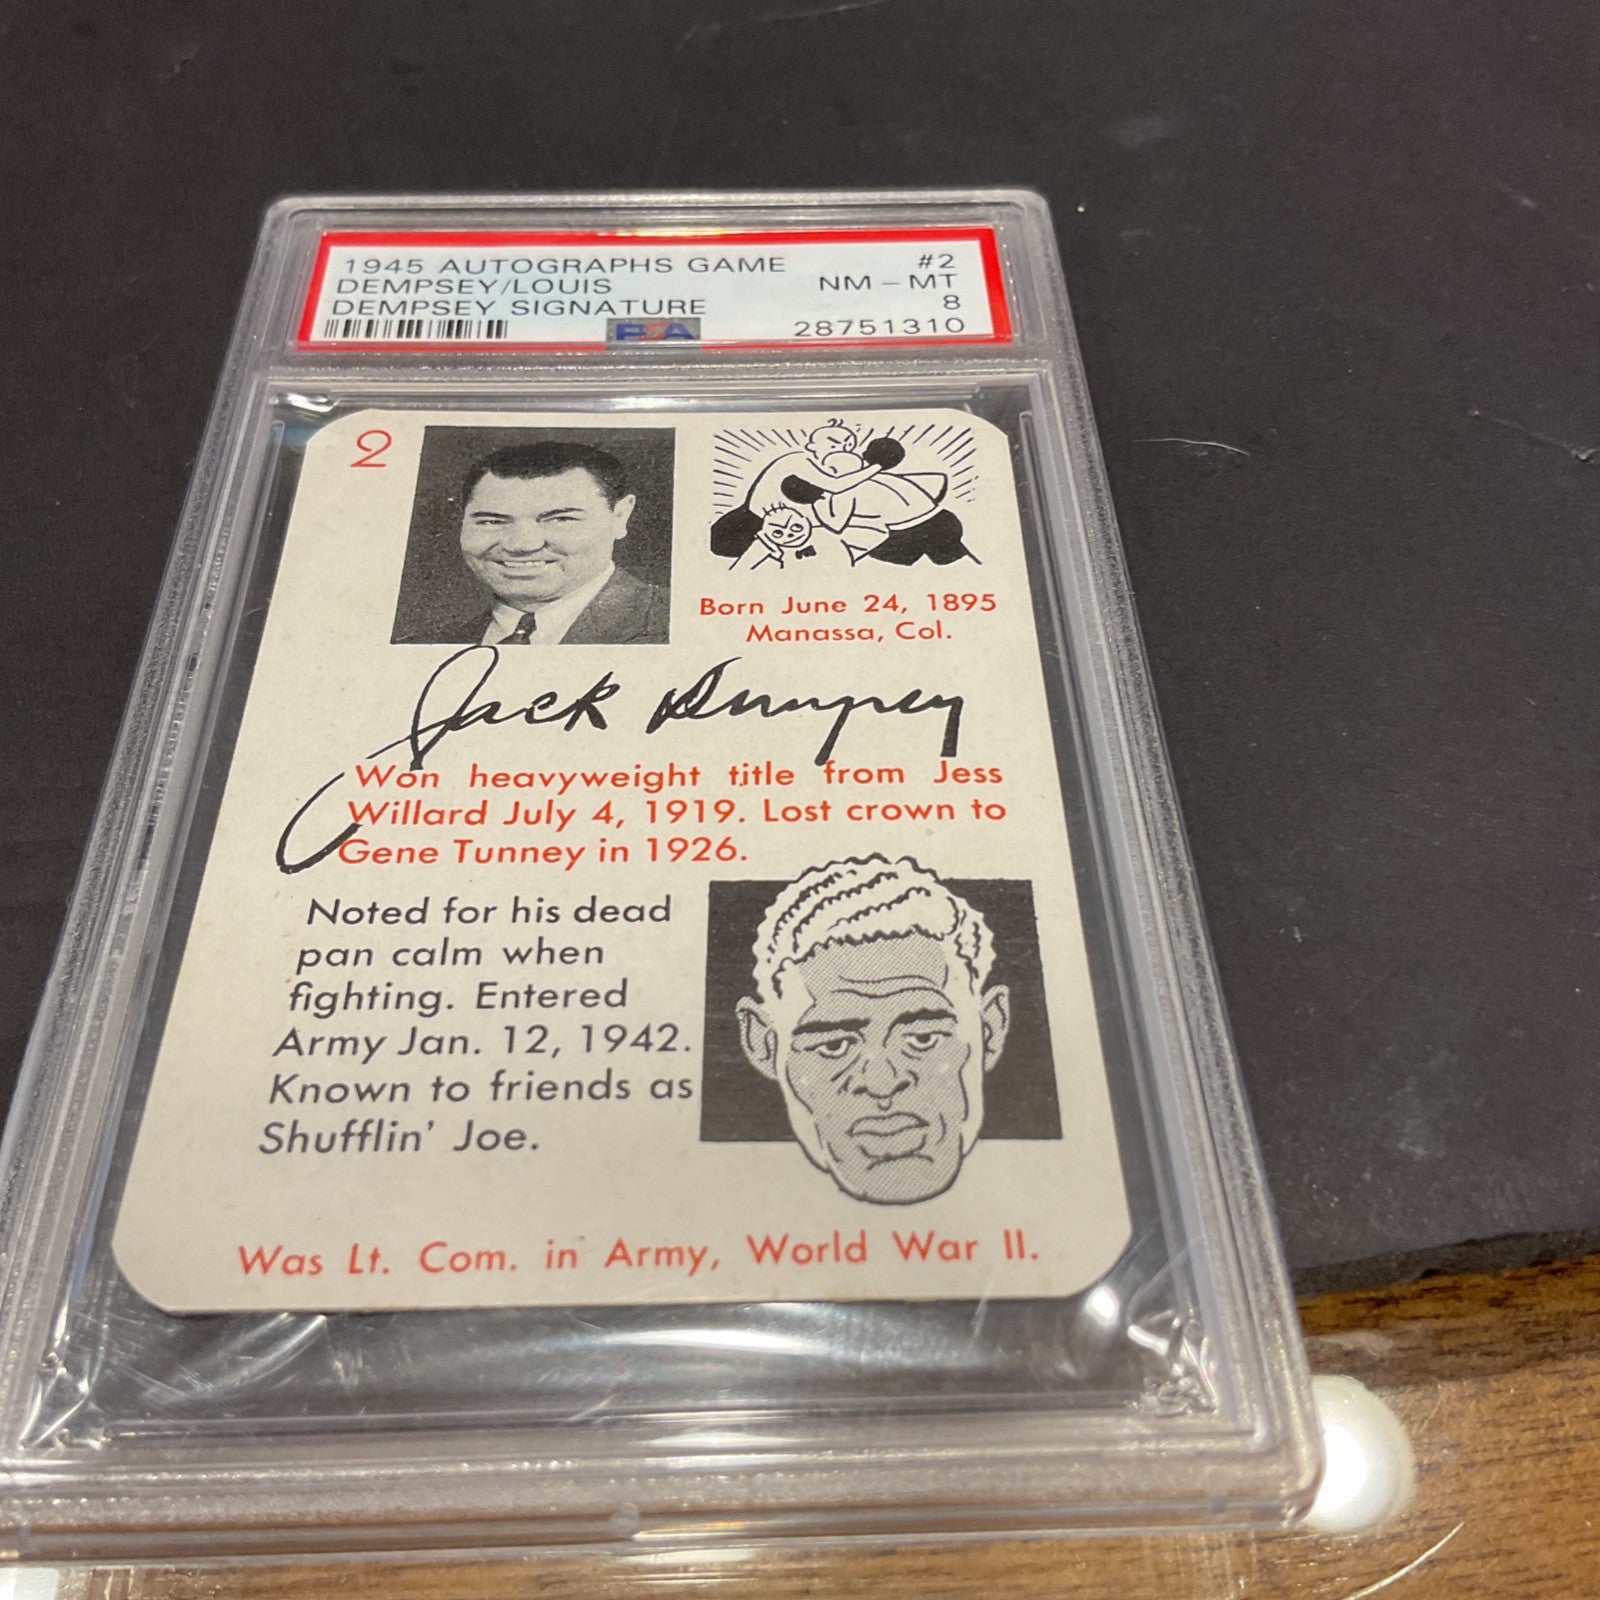 1945 AUTOGRAPHS GAME #2
DEMPSEY/LOUIS NM - MT
DEMPSEY SIGNATURE 8
PSA 28751310
2
Born June 24, 1895
Manassa, Col.
Jack Dempsey
Won heavyweight title from Jess
Willard July 4, 1919. Lost crown to
Gene Tunney in 1926.
Noted for his dead
pan calm when
fighting. Entered
Army Jan. 12, 1942.
Known to friends as
Shufflin' Joe.
Was Lt. Com. in Army, World War II.